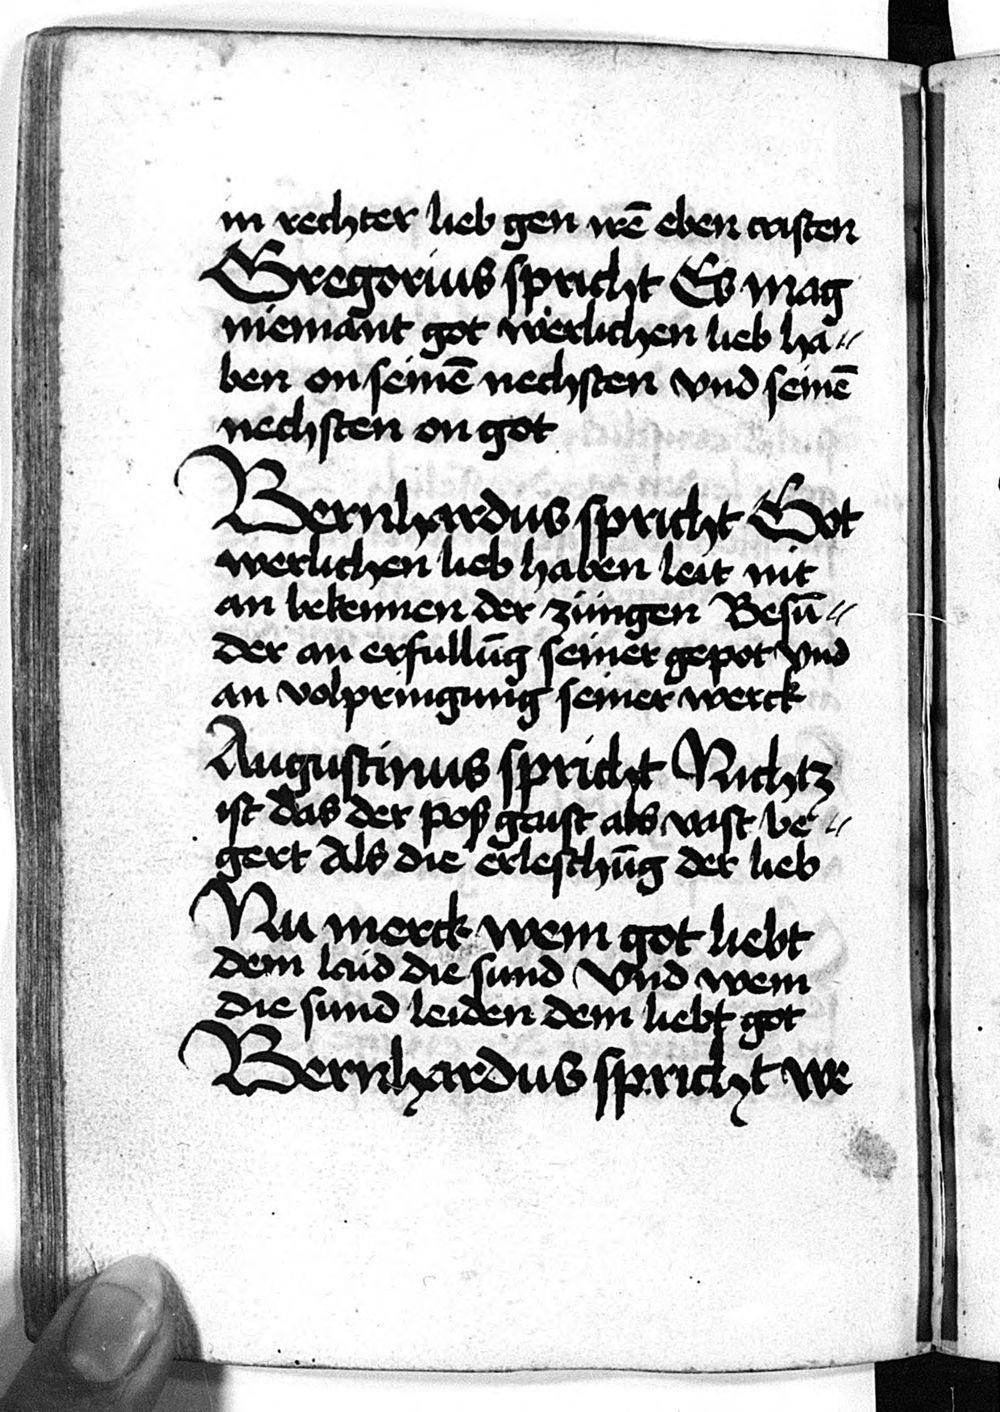 in rechter lieb gen irē eben cristen
Gregorius spricht Es mag
niemant got werlichen lieb ha〃
ben on seinē nechsten vnd seinē
nechsten on got
Bernhardus spricht Got
werlichen lieb haben leit nit
an bekennen der zungen Besū〃
der an erfullūg seiner gepot vnd
an volpringung seiner werck
Augustinus spricht Nichtz
ist das der poß gaist als vast be〃
gert Als die erleschūg der lieb
Nu merck wem got liebt
dem laid die sund Vnd wem
die sund leiden dem liebt got
Bernhardus spricht we